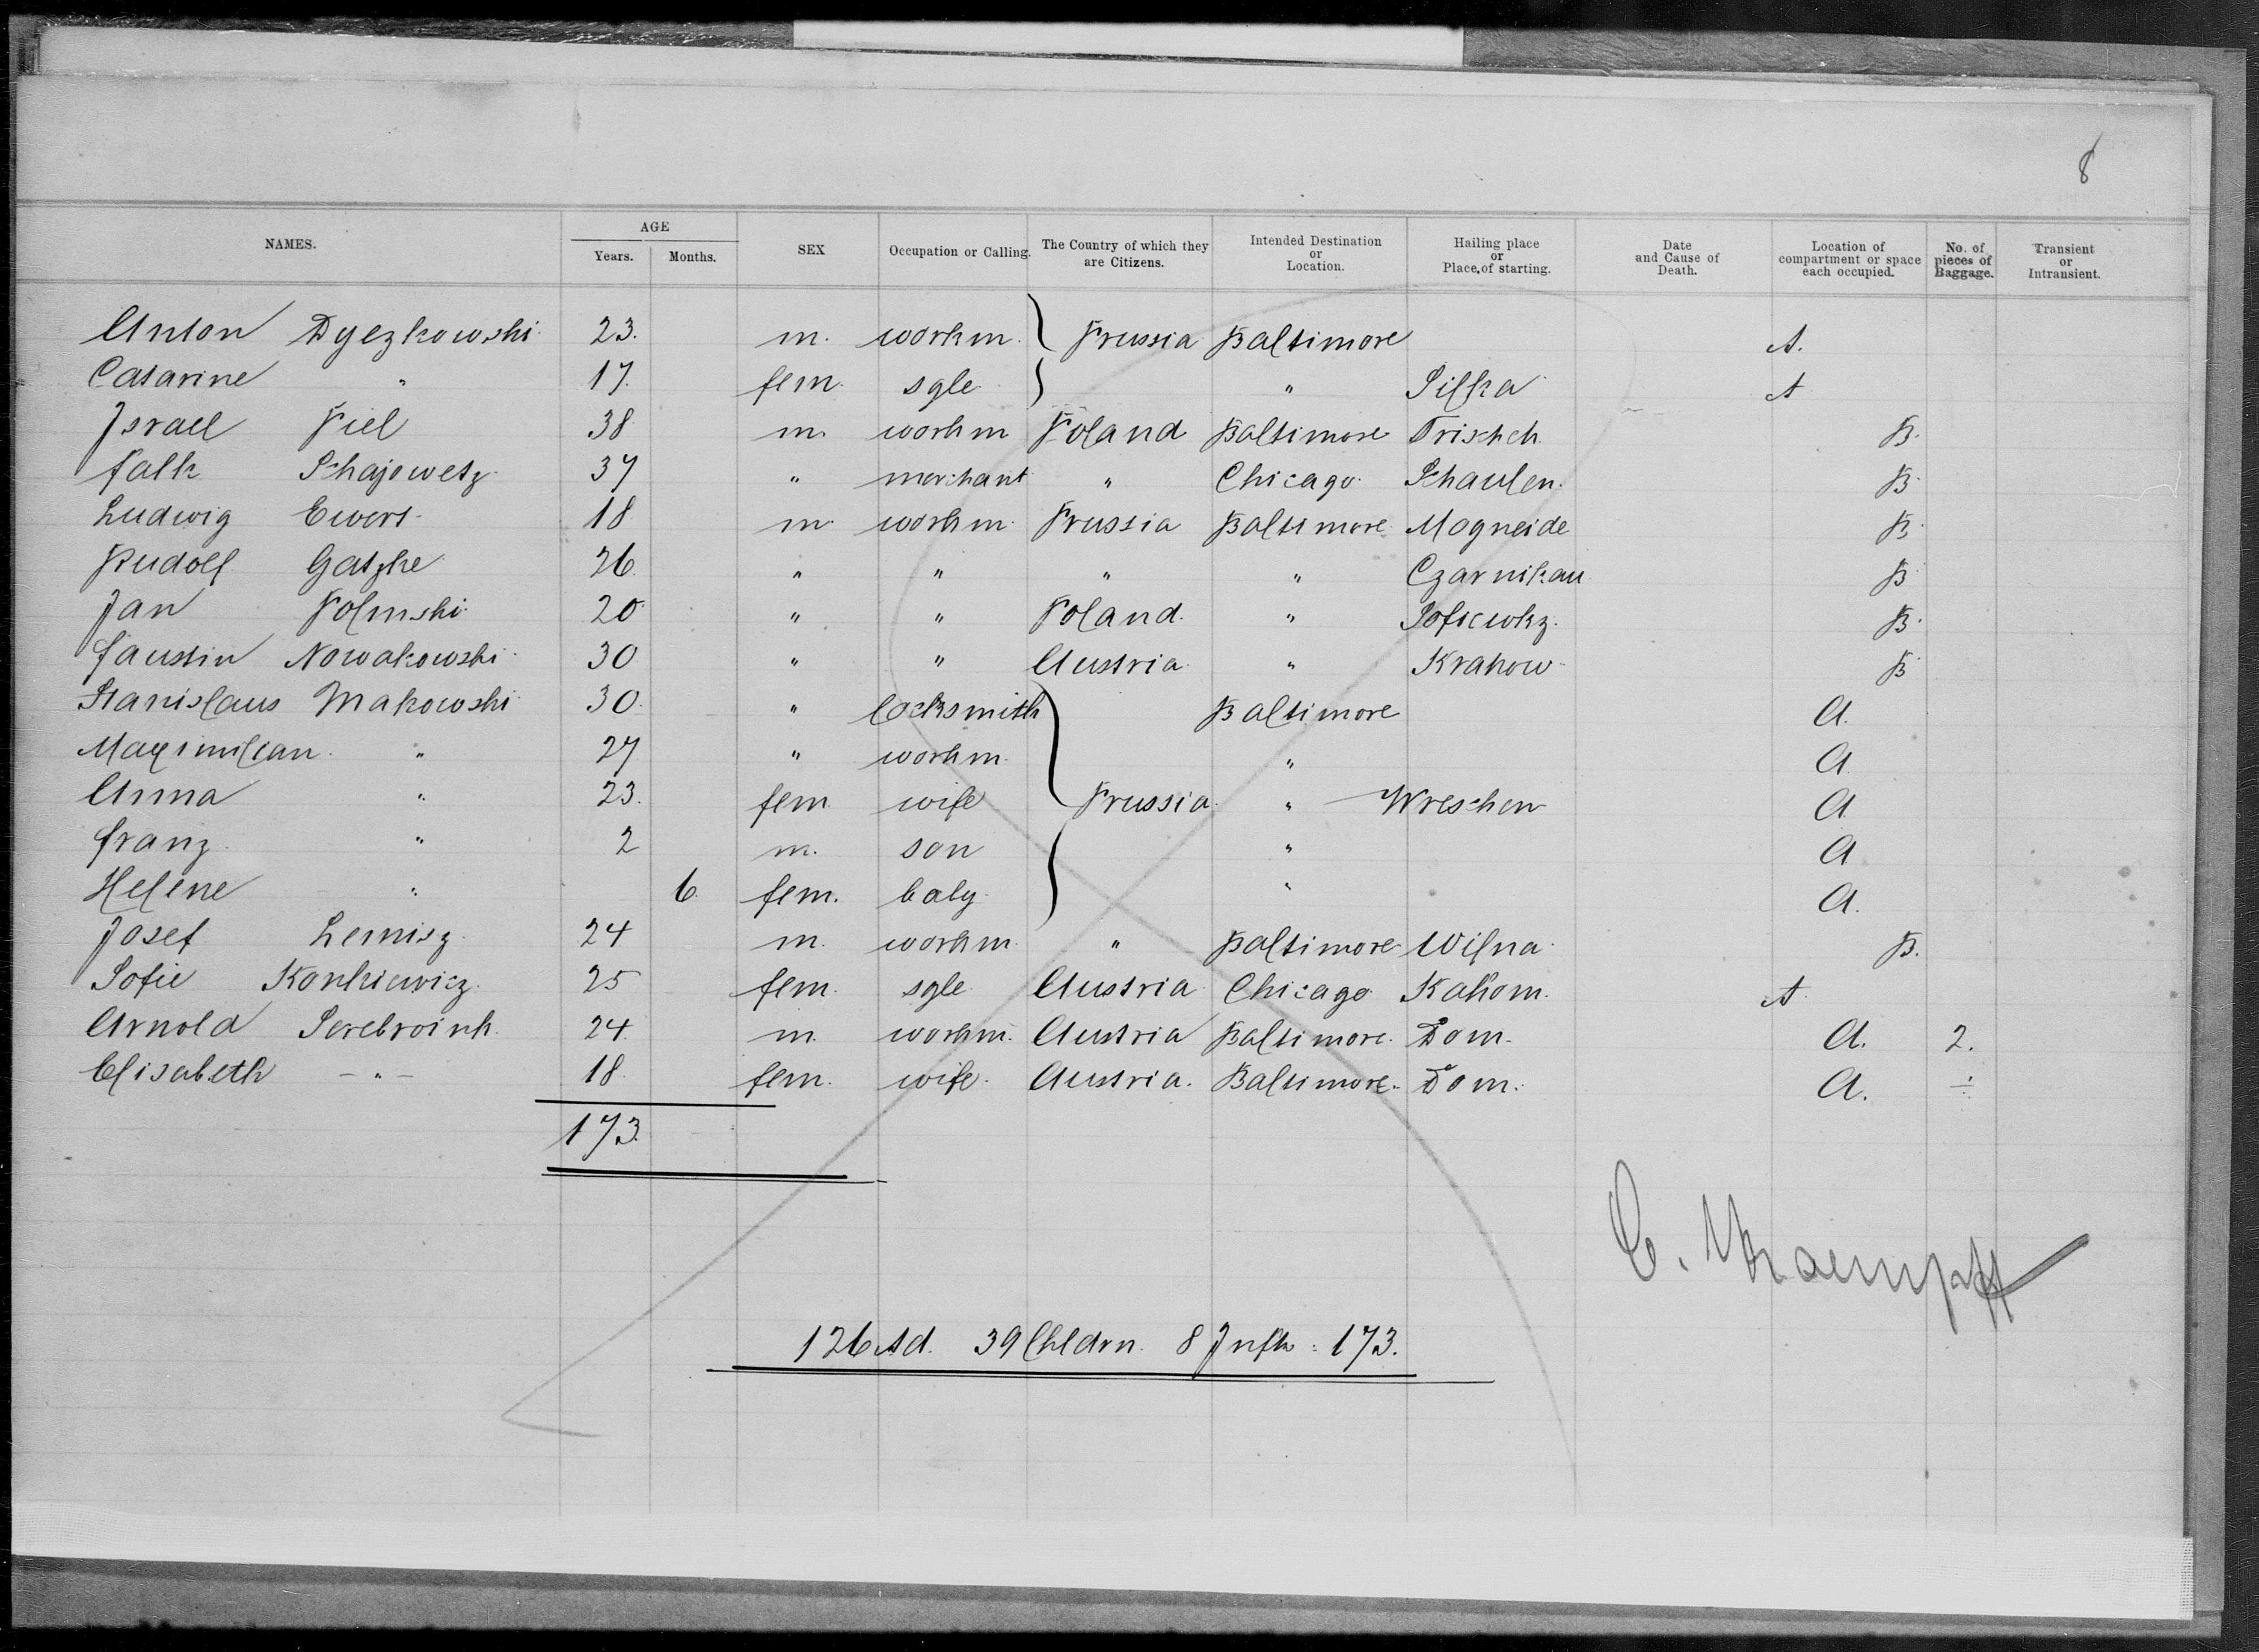 8
NAMES. AGE Years. Months. SEX Occupation or Calling. The Country of which they are Citizens. Intended Destination or Location. Hailing place or Place of starting. Date and Cause of Death. Location of compartment or space each occupied. No. of pieces of Baggage. Transient or Intransient.
Anton Dyezkowski 23. m. workm. Prussia Baltimore A.
Catarine " 17. fem. sgle " Silka A
Israel Piel 38 m. workm Poland Baltimore Trischch B.
Falk Schajewetz 37 " merchant " Chicago Schaulen. B
Ludwig Ewert 18 m. workm. Prussia Baltimore Magneide B.
Rudolf Gatzke 26 " " " " Czarnikau B
Jan Polmski 20 " " Poland. " B.
Faustin Nowakowski 30 " " Austria " Krakow B
Stanislaus Makowski 30. " locksmith Baltimore A.
Maximilian " 27 " workm. " A
Anna " 23. fem wife Prussia " Wreschen A
Franz " 2 m. son " A
Helene " 6. fem. baby " A.
Josef Lemisz 24 m. workm. " Baltimore Wilna B.
Sofie Kankiewicz 25 fem. sgle Austria Chicago Kahom. A
Arnold Serebroink. 24. m. workm. Austria Baltimore. Dom. A. 2.
Elisabeth -"- 18. fem. wife. Austria. Baltimore. Dom. A. ÷
173.
C. Kaempff
126 Ad. 39 Chldrn. 8 Infts = 173.